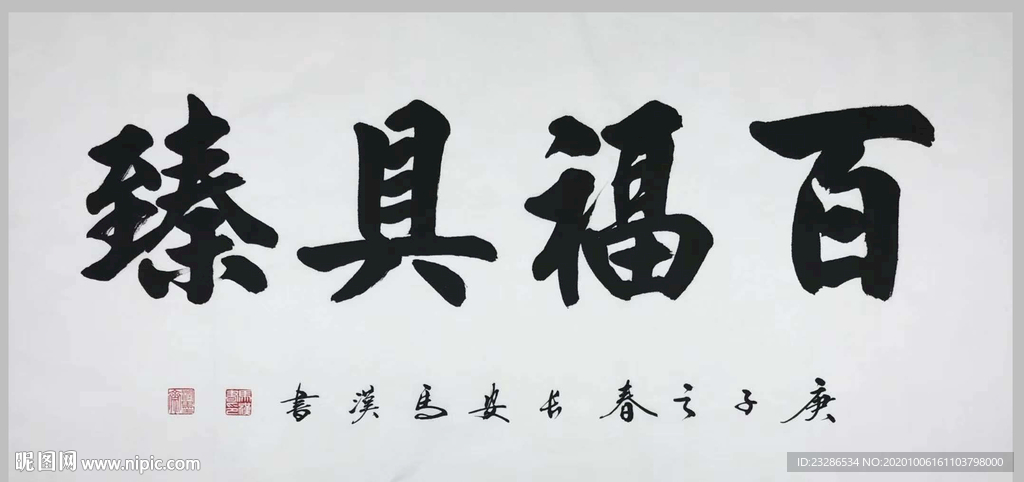 百福具臻
庚子之春长安马汉书
昵图网 www.nipic.com
ID:23286534 NO:20201006161103798000